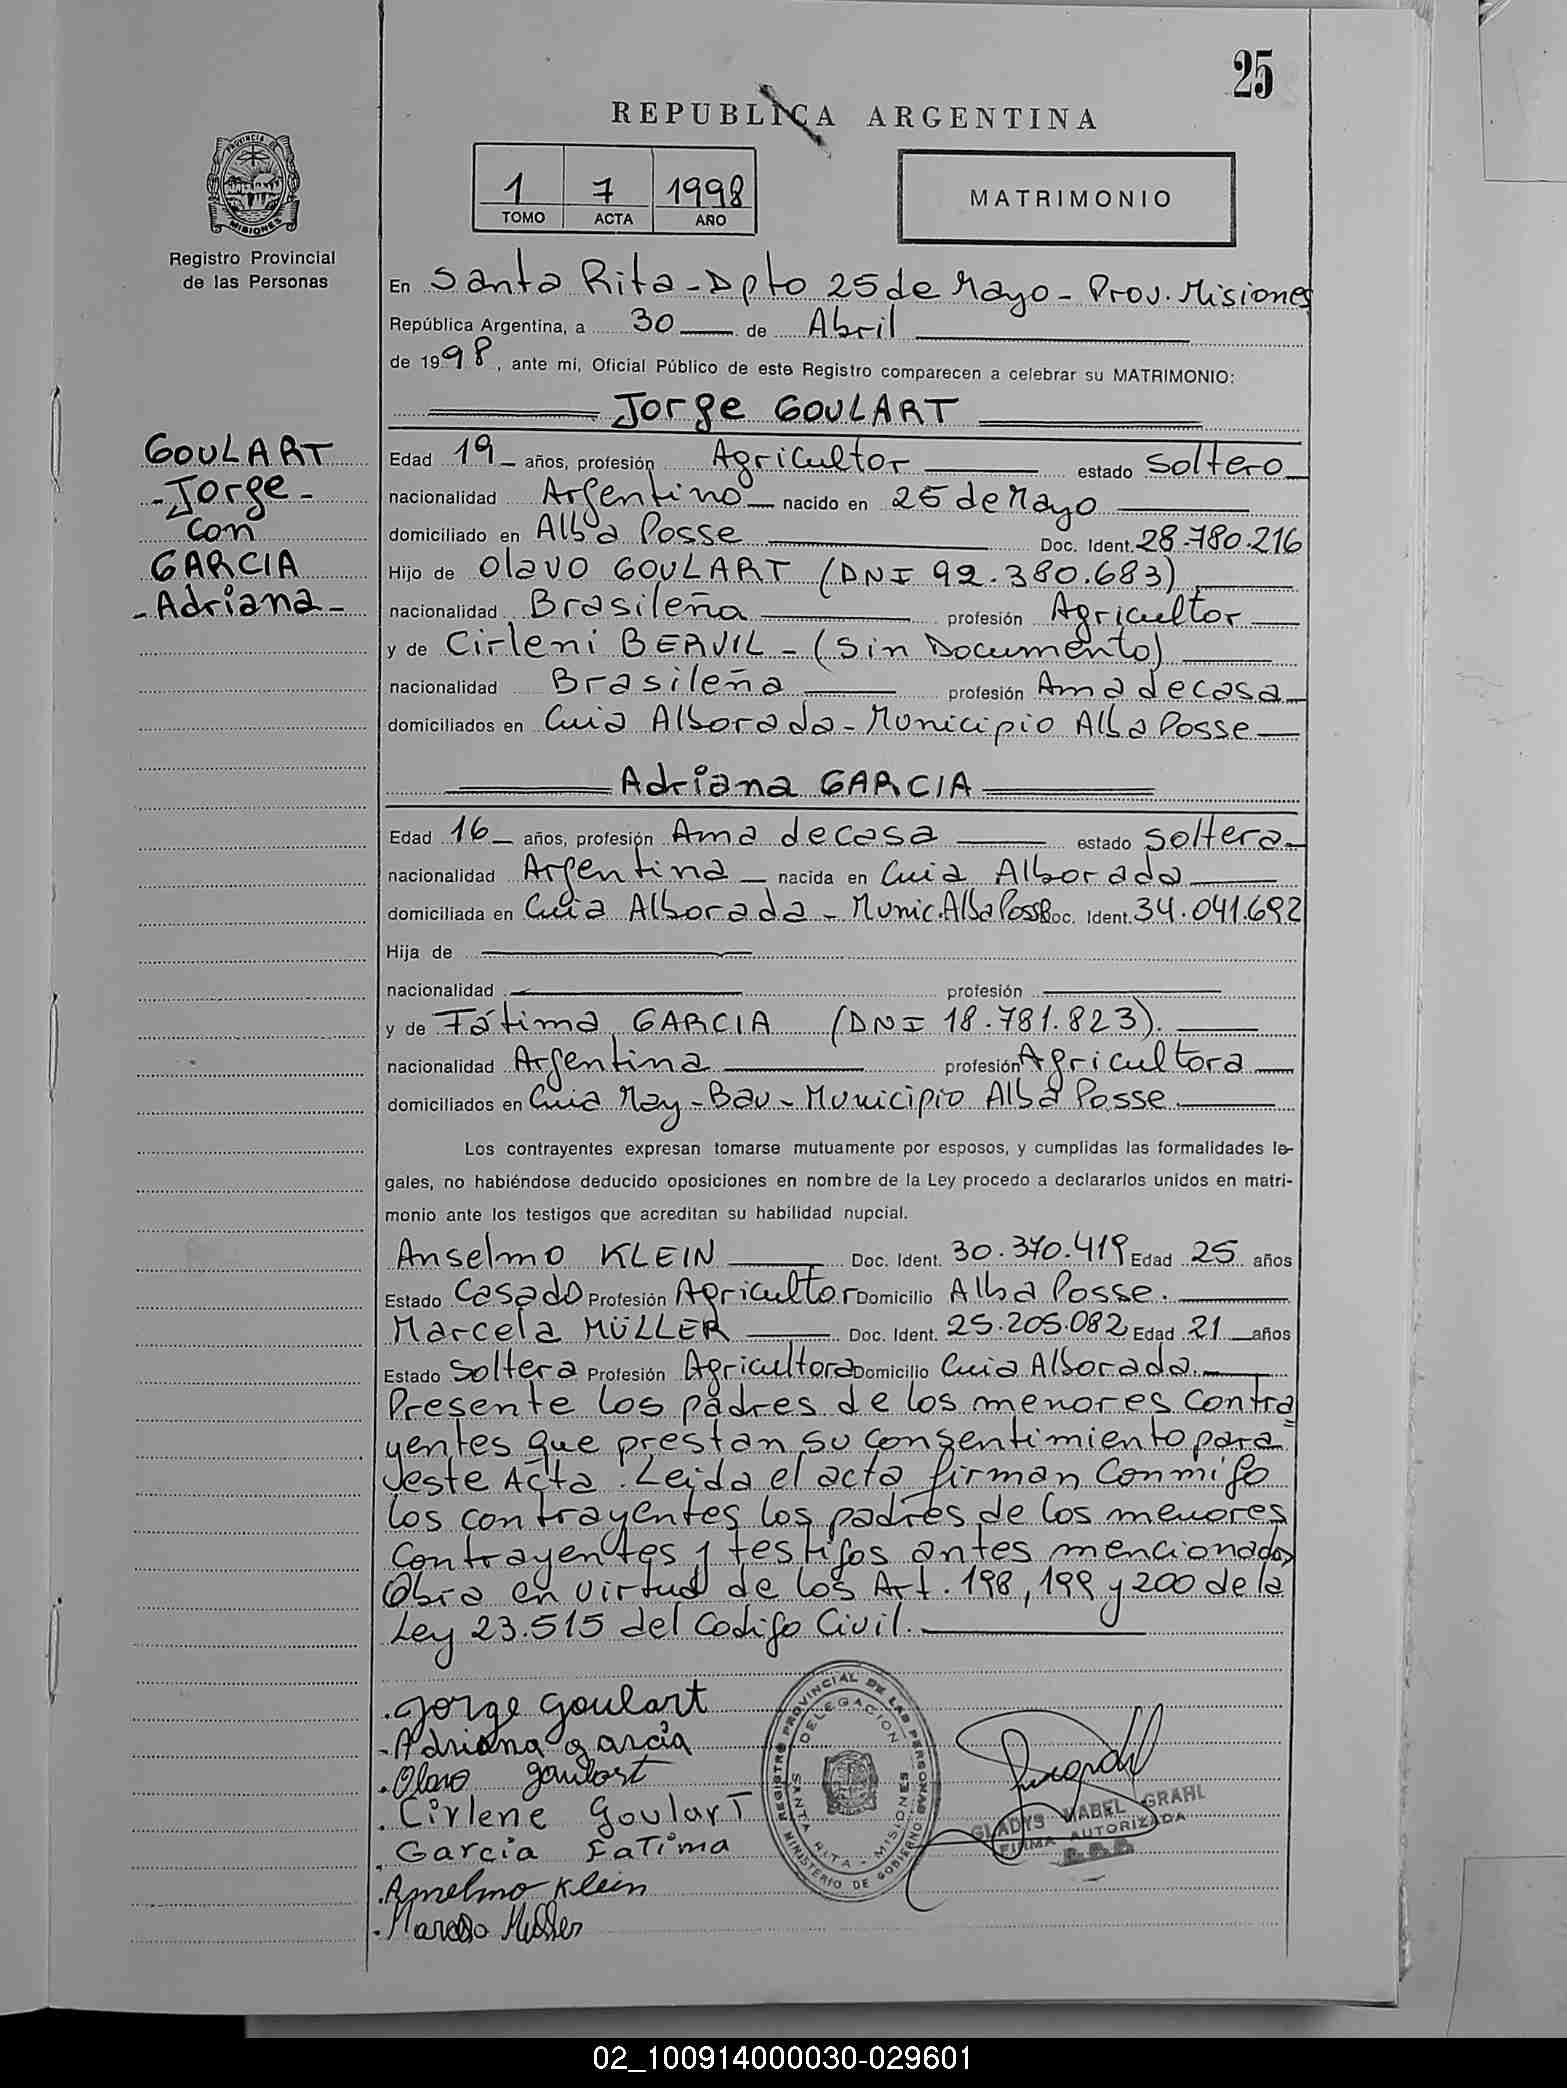 25
REPUBLICA ARGENTINA
PROVINCIA DE
MISIONES
1 7 1998
TOMO ACTA AÑO
MATRIMONIO
Registro Provincial
de las Personas
En Santa Rita - Dpto 25 de Mayo - Prov. Misiones
República Argentina, a 30 de Abril
de 1998, ante mi, Oficial Público de este Registro comparecen a celebrar su MATRIMONIO:
Jorge GOULART
GOULART
- Jorge -
con
GARCIA
- Adriana -
Edad 19 años, profesión Agricultor estado Soltero
nacionalidad Argentino nacido en 25 de Mayo
domiciliado en Alba Posse Doc. Ident. 28.780.216
Hijo de Olavo GOULART (DNI 92.380.683)
nacionalidad Brasileña profesión Agricultor
y de Cirleni BERVIL - (Sin Documento)
nacionalidad Brasileña profesión Ama de casa
domiciliados en Cuia Alborada - Municipio Alba Posse
Adriana GARCIA
Edad 16 años, profesión Ama de casa estado soltera
nacionalidad Argentina nacida en Cuia Alborada
domiciliada en Cuia Alborada - Munic. Alba Posse Doc. Ident. 34.041.692
Hija de
nacionalidad profesión
y de Fátima GARCIA (DNI 18.781.823).
nacionalidad Argentina profesión Agricultora
domiciliados en Cuia May-Bau - Municipio Alba Posse
Los contrayentes expresan tomarse mutuamente por esposos, y cumplidas las formalidades le-
gales, no habiéndose deducido oposiciones en nombre de la Ley procedo a declararlos unidos en matri-
monio ante los testigos que acreditan su habilidad nupcial.
Anselmo KLEIN Doc. Ident. 30.370.419 Edad 25 años
Estado Casado Profesión Agricultor Domicilio Alba Posse.
Marcela MÜLLER Doc. Ident. 25.205.082 Edad 21 años
Estado Soltera Profesión Agricultora Domicilio Cuia Alborada.
Presente los padres de los menores contra
yentes que prestan su consentimiento para
este Acta. Leida el acta firman conmigo
los contrayentes los padres de los menores
contrayentes y testigos antes mencionados
Obra en virtud de los Art. 198, 199 y 200 de la
Ley 23.515 del Codigo Civil.
Jorge Goulart
Adriana garcia
Olavo goulart
Cirlene Goulart
Garcia Fatima
Anselmo Klein
Marcela Müller
REGISTRO PROVINCIAL DE LAS PERSONAS
MINISTERIO DE GOBIERNO
DELEGACION
SANTA RITA - MISIONES
GLADYS MABEL GRAHL
FIRMA AUTORIZADA
02_100914000030-029601